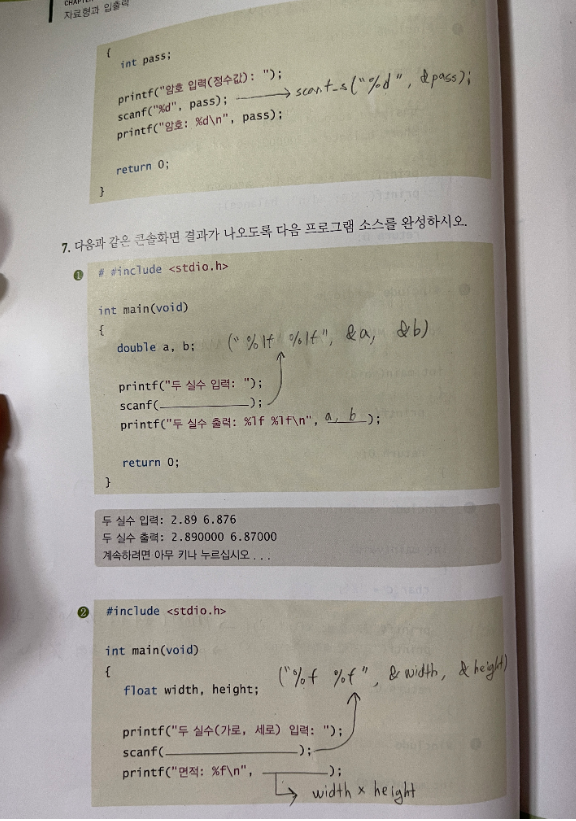 자료형과 입출력
{
int pass;
printf("암호 입력(정수값): ");
scanf("%d", pass); → scanf_s("%d", &pass);
printf("암호: %d\n", pass);
return 0;
}
7. 다음과 같은 콘솔화면 결과가 나오도록 다음 프로그램 소스를 완성하시오.
❶ # #include <stdio.h>
int main(void)
{
double a, b; ("%lf %lf", &a, &b)
printf("두 실수 입력: ");
scanf(__________);
printf("두 실수 출력: %lf %lf\n", a, b);
return 0;
}
두 실수 입력: 2.89 6.876
두 실수 출력: 2.890000 6.87000
계속하려면 아무 키나 누르십시오 . . .
❷ #include <stdio.h>
int main(void)
{
("%f %f", &width, &height)
float width, height;
printf("두 실수(가로, 세로) 입력: ");
scanf(__________);
printf("면적: %f\n", __________);
width × height